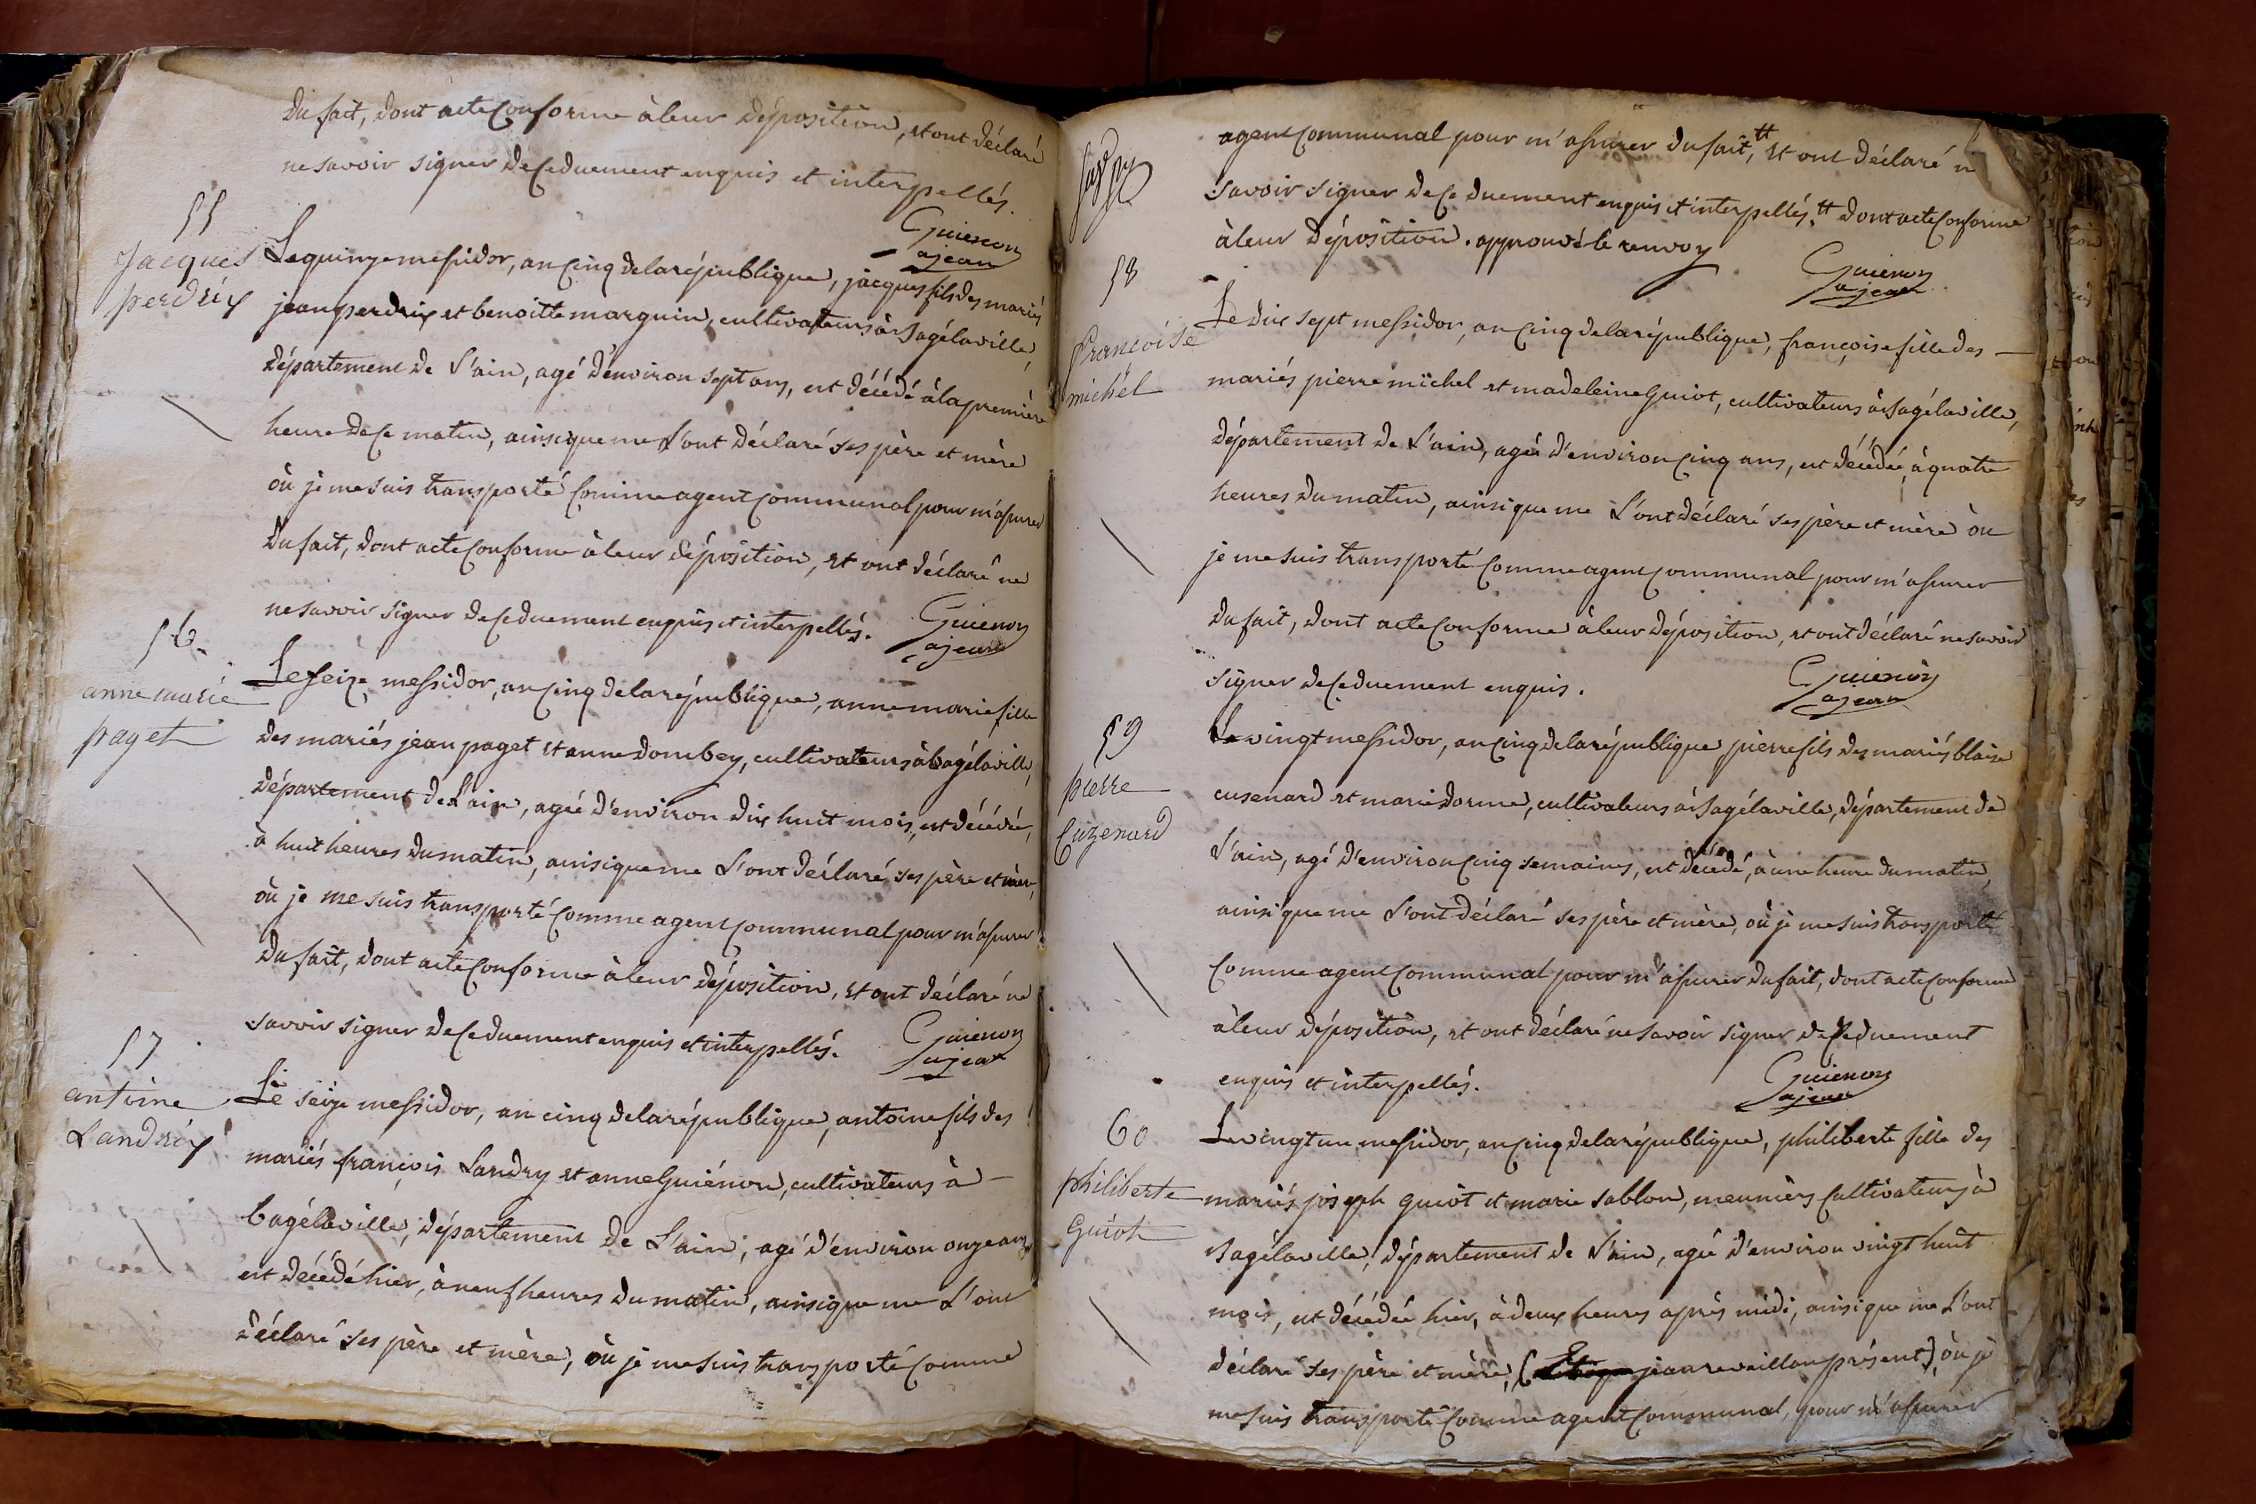 du fait, dont acte conforme à leur déposition, et ont déclaré
ne savoir signer de ce duement enquis et interpellés.
Guienon
ajean
55
Jacques
perdrix
Le quinze messidor, an cinq de la république, jacques fils des mariés
jean perdrix et benoitte marguin, cultivateurs à Bagélaville,
département de l'ain, agé d'environ sept ans, est décédé à la première
heure de ce matin, ainsi que me l'ont déclaré ses père et mère
où je me suis transporté comme agent communal pour m'assurer
du fait, dont acte conforme à leur déposition, et ont déclaré ne
ne savoir signer de ce duement enquis et interpellés.
Guienon
ajean
56.
anne marie
paget
Le seize messidor, an cinq de la république, anne marie fille
des mariés jean paget et anne dombey, cultivateurs à bagélaville,
département de l'ain, agée d'environ dix huit mois, est décédée,
à huit heures du matin, ainsi que me l'ont déclaré ses père et mère,
où je me suis transporté comme agent communal pour m'assurer
du fait, dont acte conforme à leur déposition, et ont déclaré ne
savoir signer de ce duement enquis et interpellés.
Guienon
ajean
57
antoine
Landrix
Le seize messidor, an cinq de la république, antoine fils des
mariés françois Landry et anne Guiénon, cultivateurs à
bagélaville, département de l'ain, agé d'environ onze ans,
est décédé hier, à neuf heures du matin, ainsi que me l'ont
déclaré ses père et mère, où je me suis transporté comme
agent communal pour m'assurer du fait, # et ont déclaré n
savoir signer de ce duement enquis et interpellés. # dont acte conforme
à leur déposition. approuvé le renvoy
Guienon
ajean
58
françoise
michel
Le dix sept messidor, an cinq de la république, françoise fille des
mariés pierre michel et madeleine Guiot, cultivateurs à Bagélaville,
département de l'ain, agée d'environ cinq ans, est décédée, à quatre
heures du matin, ainsi que me l'ont déclaré ses père et mère où
je me suis transporté comme agent communal pour m'assurer
du fait, dont acte conforme à leur déposition, et ont déclaré ne savoir
signer de ce duement enquis.
Guienon
ajean
59
pierre
Cuzenard
Le vingt messidor, an cinq de la république pierre fils des mariés blaise
cusenard et marie dorme, cultivateurs à Bagélaville, département de
l'ain, agé d'environ cinq semaines, est décédé, à une heure du matin,
ainsi que me l'ont déclaré ses père et mère, où je me suis transporté
comme agent communal pour m'assurer du fait, dont acte conforme
à leur déposition, et ont déclaré ne savoir signer de ce duement
enquis et interpellés.
Guienon
ajean
60
philiberte
Guiot
Le vingt un messidor, an cinq de la république, philiberte fille des
mariés joseph guiot et marie sablon, meuniers cultivateurs à
Bagélaville, département de l'ain, agée d'environ vingt huit
mois, est décédée hier, à deux heures après midi, ainsi que me l'ont
déclaré ses père et mère, ( jean reveillon présent), où je
me suis transporté comme agent communal, pour m'assurer